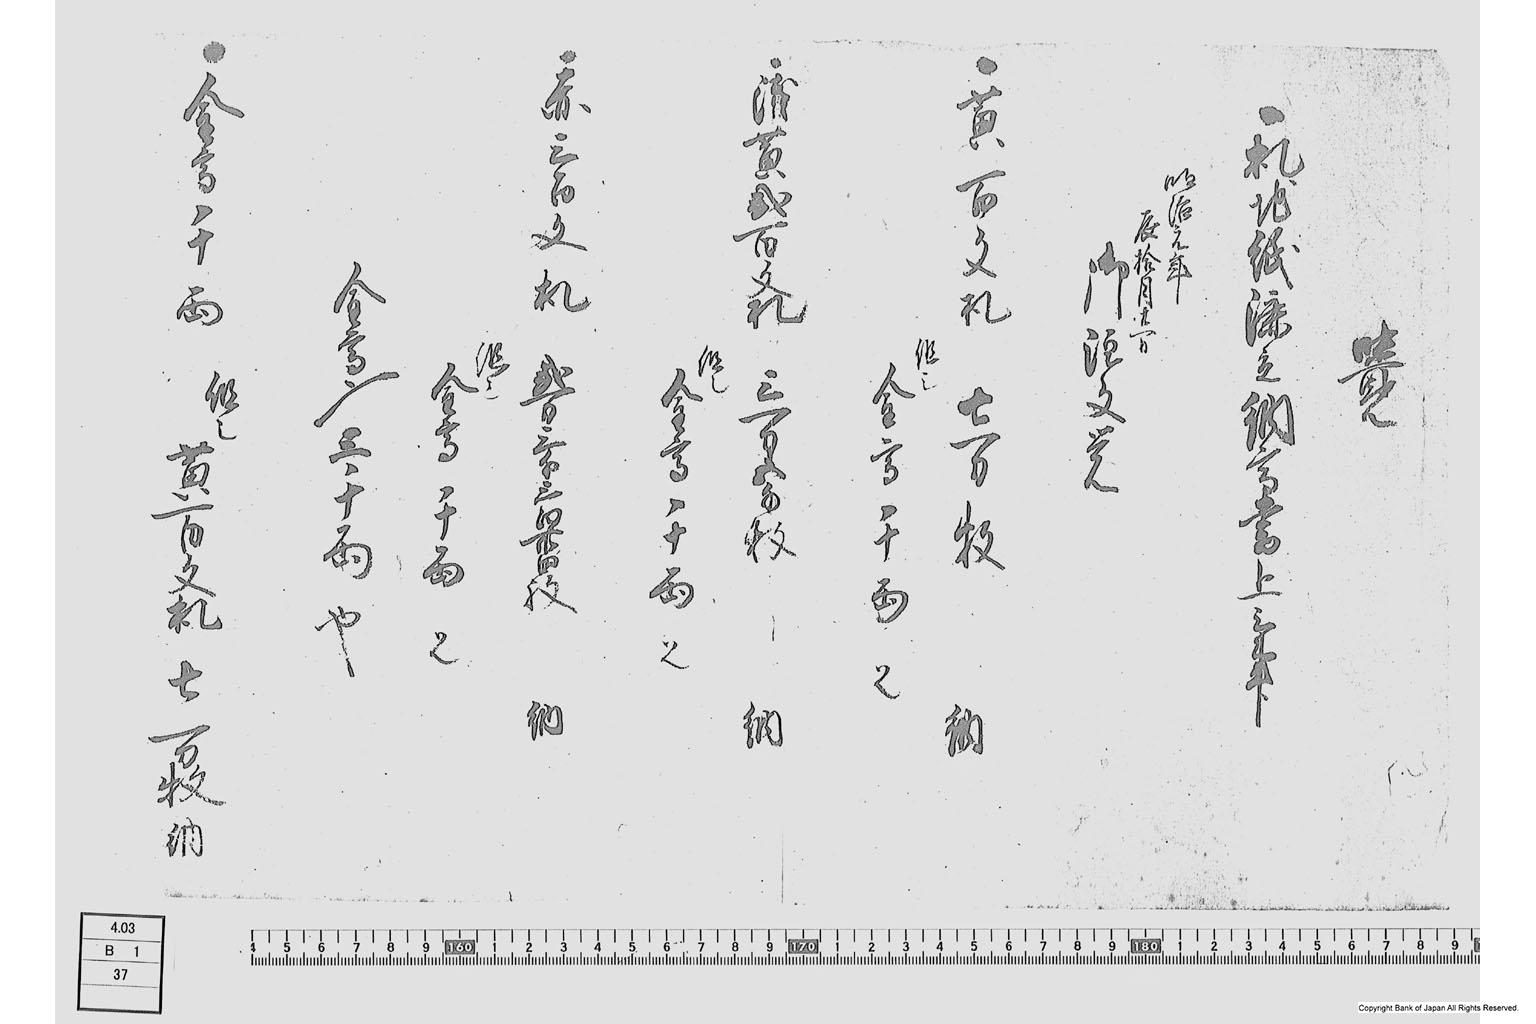 覚
札地紙漉立納高書上
明治元年
辰拾月廿一日
御注文覚
黄百文札 七百枚 納
但し
金高 一十両
浦黄弐百文札 三百五十枚 納
但し
金高 一十両
赤三百文札 弐百三十三枚 納
但し
金高 一十両
金高〆三十両也
金高一十両
但し
黄一百文札 七百枚 納
4.03
B 1
37
4 5 6 7 8 9 160 1 2 3 4 5 6 7 8 9 170 1 2 3 4 5 6 7 8 9 180 1 2 3 4 5 6 7 8 9
Copyright Bank of Japan All Rights Reserved.